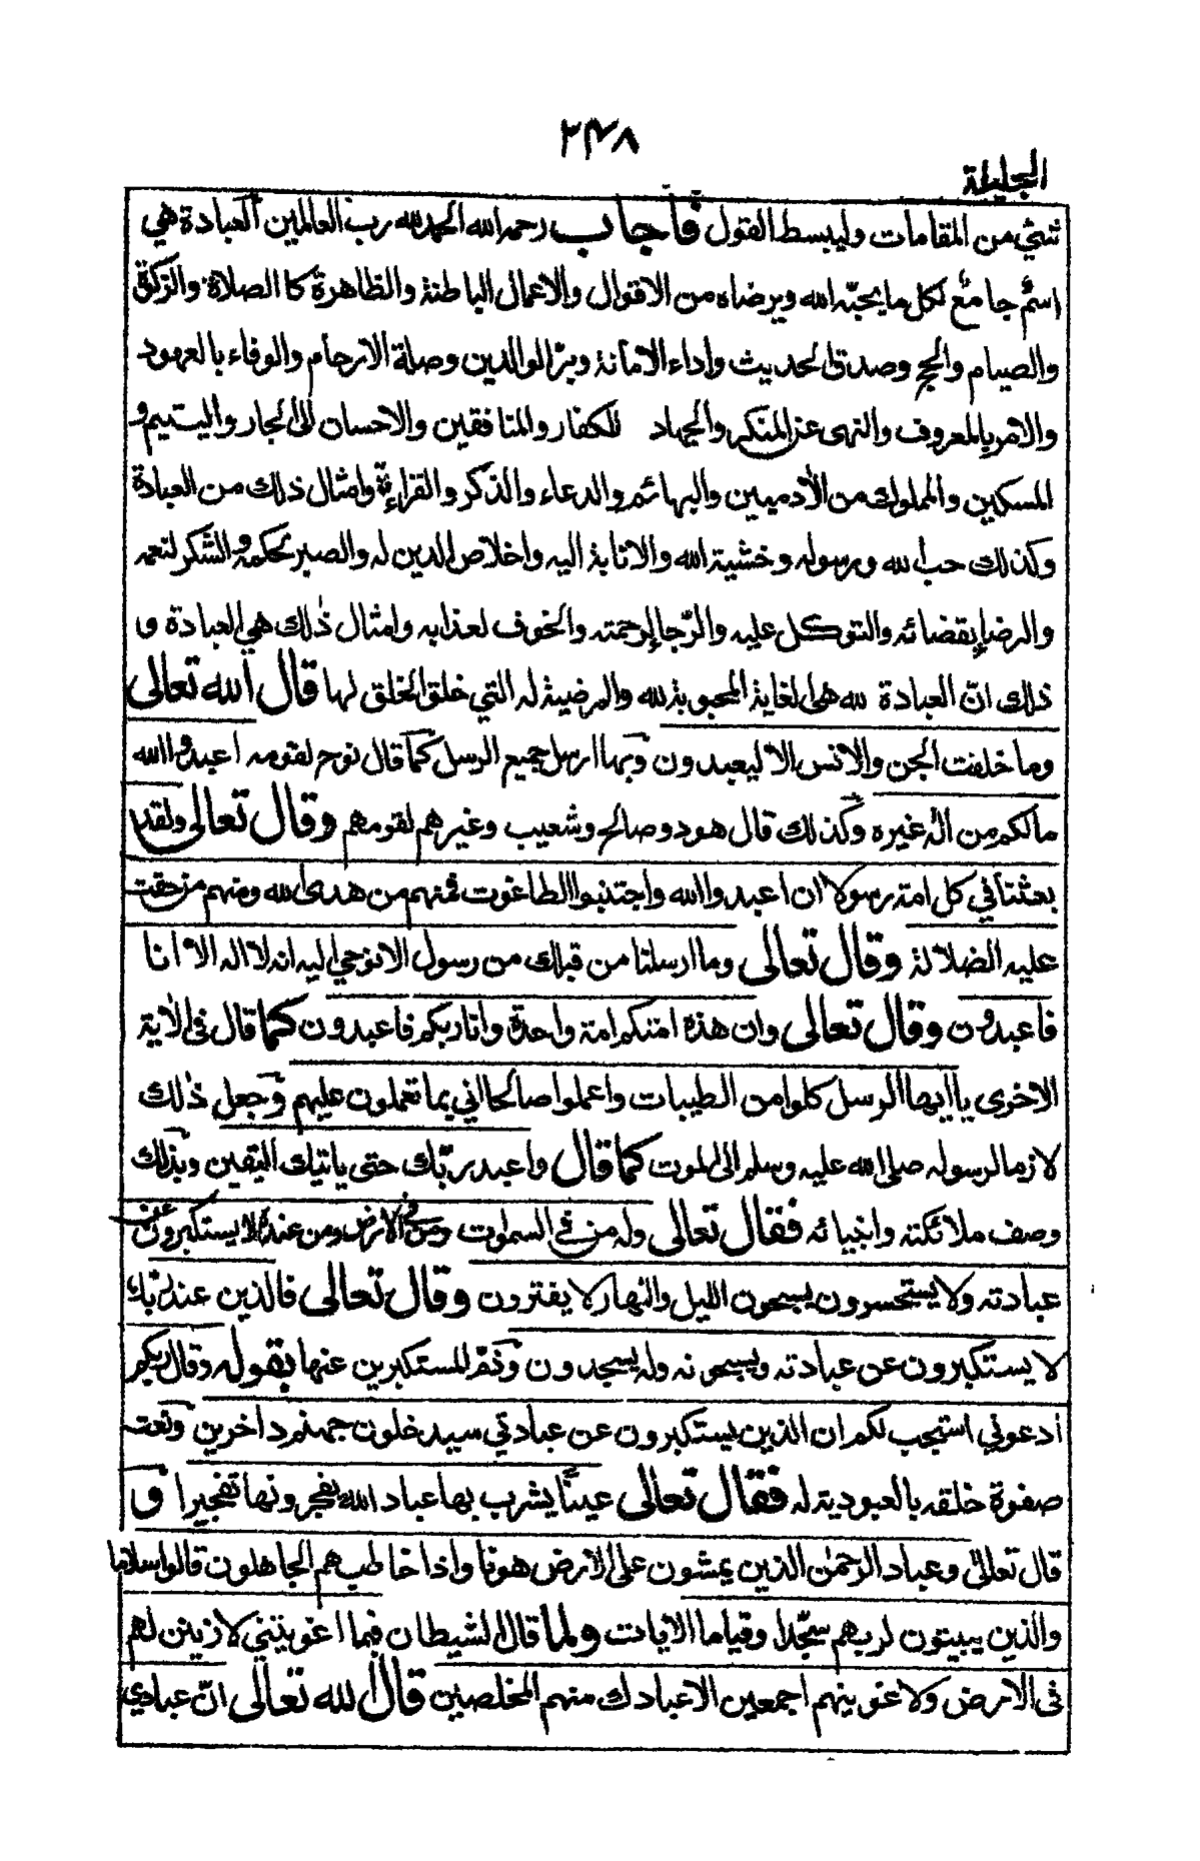 ٢٤٨
الجليلة
شيء من المقامات وليبسط القول فاجاب رحمه الله الحمد لله رب العالمين العبادة هي
اسم جامع لكل ما يحبه الله ويرضاه من الاقوال والاعمال الباطنة والظاهرة كا الصلاة والزكوة
والصيام والحج وصدق الحديث واداء الامانة وبر الوالدين وصلة الارحام والوفاء بالعهود
والامر بالمعروف والنهى عن المنكر والجهاد للكفار والمنافقين والاحسان الى الجار واليتيم و
المسكين والمملوك من الأدميين والبهائم والدعاء والذكر والقراءة وامثال ذلك من العبادة
وكذلك حب الله ورسوله وخشية الله والانابة اليه واخلاص الدين له والصبر لحكمه والشكر لنعمه
والرضا بقضائه والتوكل عليه والرجا لرحمته والخوف لعذابه وامثال ذلك هي العبادة و
ذلك ان العبادة لله هى الغاية المحبوبة لله والمرضية له التي خلق الخلق لها قال الله تعالى
وما خلقت الجن والانس الا ليعبدون وبها ارسل جميع الرسل كما قال نوح لقومه اعبدوا الله
مالكم من اله غيره وكذلك قال هود وصالح وشعيب وغيرهم لقومهم وقال تعالى ولقد
بعثنا في كل امة رسولا ان اعبدوا الله واجتنبوا الطاغوت فمنهم من هدى الله ومنهم من حقت
عليه الضلالة وقال تعالى وما ارسلنا من قبلك من رسول الا نوحي اليه انه لا اله الا انا
فاعبدون وقال تعالى وان هذه امتكم امة واحدة وانا ربكم فاعبدون كما قال في الاية
الاخرى يا ايها الرسل كلوا من الطيبات واعملوا صالحا اني بما تعملون عليم وجعل ذلك
لازما لرسوله صلى الله عليه وسلم الى الموت كما قال واعبد ربك حتى ياتيك اليقين وبذلك
وصف ملائكته وانبيائه فقال تعالى وله من في السموت ومن في الارض ومن عنده لا يستكبرون عن
عبادته ولا يستحسرون يسبحون الليل والنهار لا يفترون وقال تعالى فالذين عند ربك
لا يستكبرون عن عبادته ويسبحونه وله يسجدون وذم المستكبرين عنها بقوله وقال ربكم
ادعوني استجب لكم ان الذين يستكبرون عن عبادتي سيدخلون جهنم داخرين ونعت
صفوة خلقه بالعبودية له فقال تعالى عينا يشرب بها عباد الله يفجرونها تفجيرا و
قال تعالى وعباد الرحمن الذين يمشون على الارض هونا واذا خاطبهم الجاهلون قالوا سلاما
والذين يبيتون لربهم سجدا وقياما الايات ولما قال الشيطان فبما اغويتني لازينن لهم
في الارض ولاغوينهم اجمعين الا عبادك منهم المخلصين قال الله تعالى ان عبادي